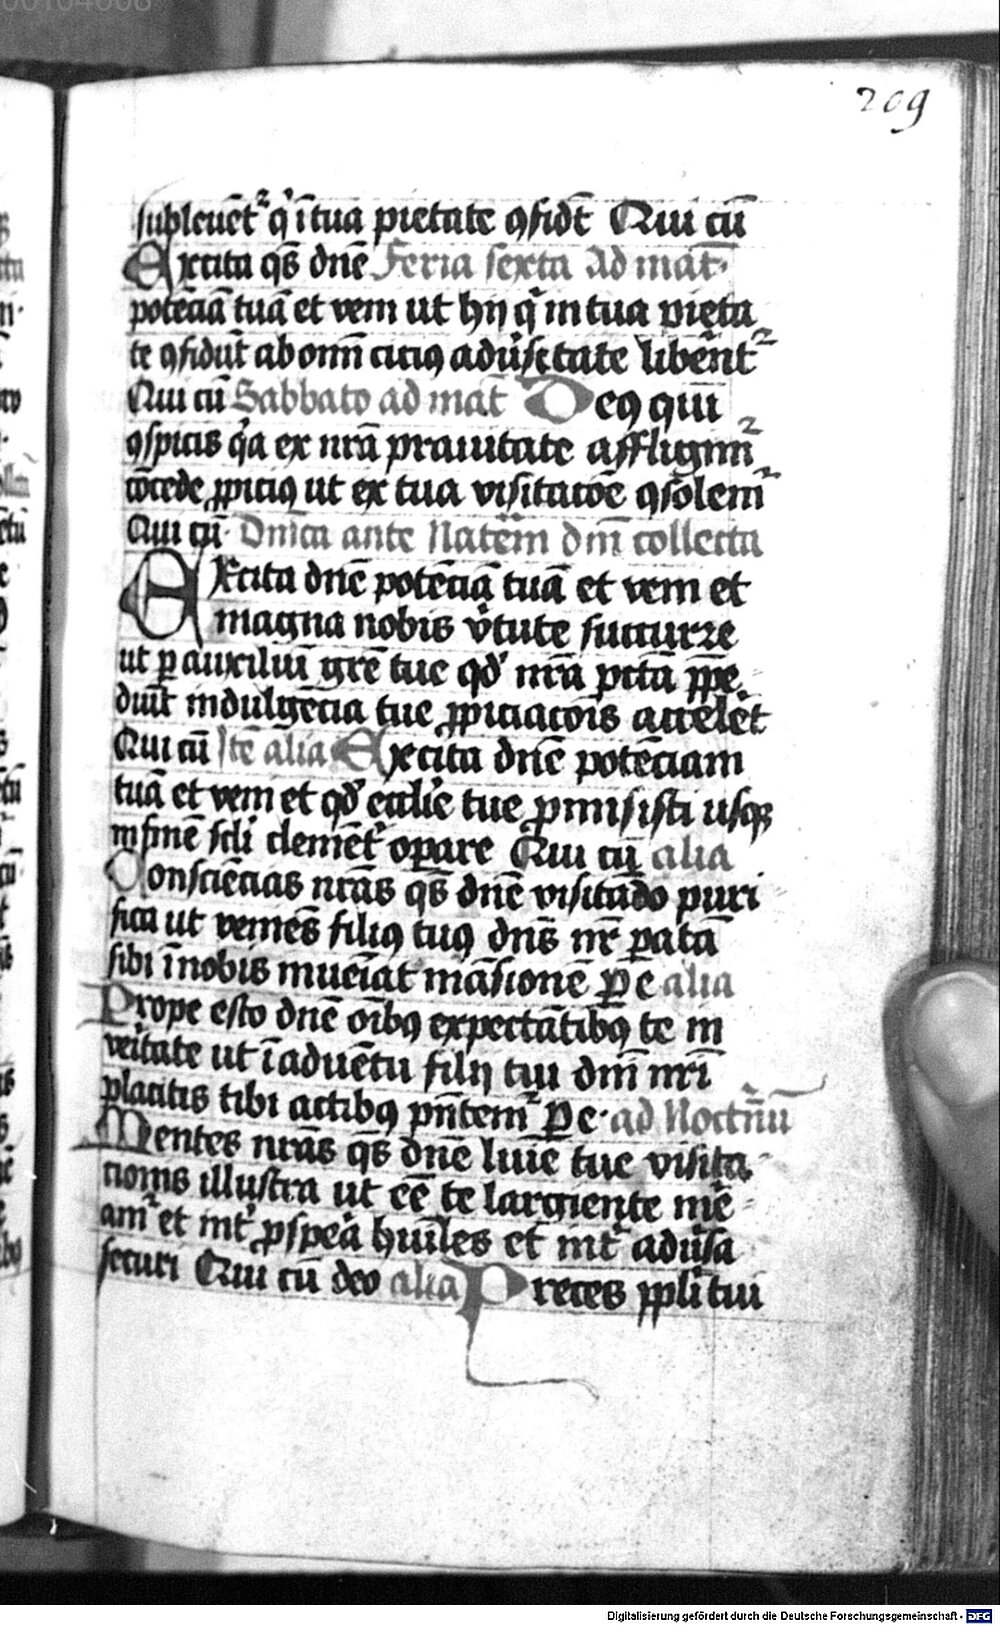 00104008
209
subleuēt² q̇ ī tua pietate ꝯfidēt Qui cū
Excita qs̄ dn̄e Feria sexta ad mat̄
potēciā tuā et veni ut hij q̇ in tua pieta
te ꝯfidūt ab om̄i citiꝰ adūsitate liben̄t²
Qui cū Sabbato ad mat̄ Deꝰ qui
ꝯspicis q̇a ex nr̄a prauitate affligim̄²
cōcede ꝓpiciꝰ ut ex tua visitacōe ꝯsolem̄²
Qui cū Dn̄ica ante Natēm dn̄i collecta
Excita dn̄e potēciā tuā et veni et
magna nobis v̇tute succurre
ut ꝑ auxiliū gr̄e tue qd̓ nr̄a pctā p̄pe
diūt indulgēcia tue ꝓpiciacōis accelēt
Qui cū Itē alia Excita dn̄e potēciam
tuā et veni et qd̓ eccl̄ie tue ꝓmisisti usqꝫ
in finē scl̄i clemēt̓ oꝑare Qui cū alia
Consciēcias nr̄as qs̄ dn̄e visitādo puri
fica ut veniēs filiꝰ tuꝰ dn̄s nr̄ ꝑatā
sibi ī nobis iueīat māsionē Pe alia
Prope esto dn̄e oīb⁹ expectātib⁹ te in
veītate ut ī aduētu filij tui dn̄i nr̄i
placitis tibi actib⁹ pn̄tem² Pe· ad Noctn̄ū
Mentes nr̄as qs̄ dn̄e lūie tue visita
tionis illustra ut eē te largiente me
am² et int̓ ꝓspea hūiles et int̓ adūsa
securi Qui cū deo alia Preces pp̄li tui
Digitalisierung gefördert durch die Deutsche Forschungsgemeinschaft - DFG